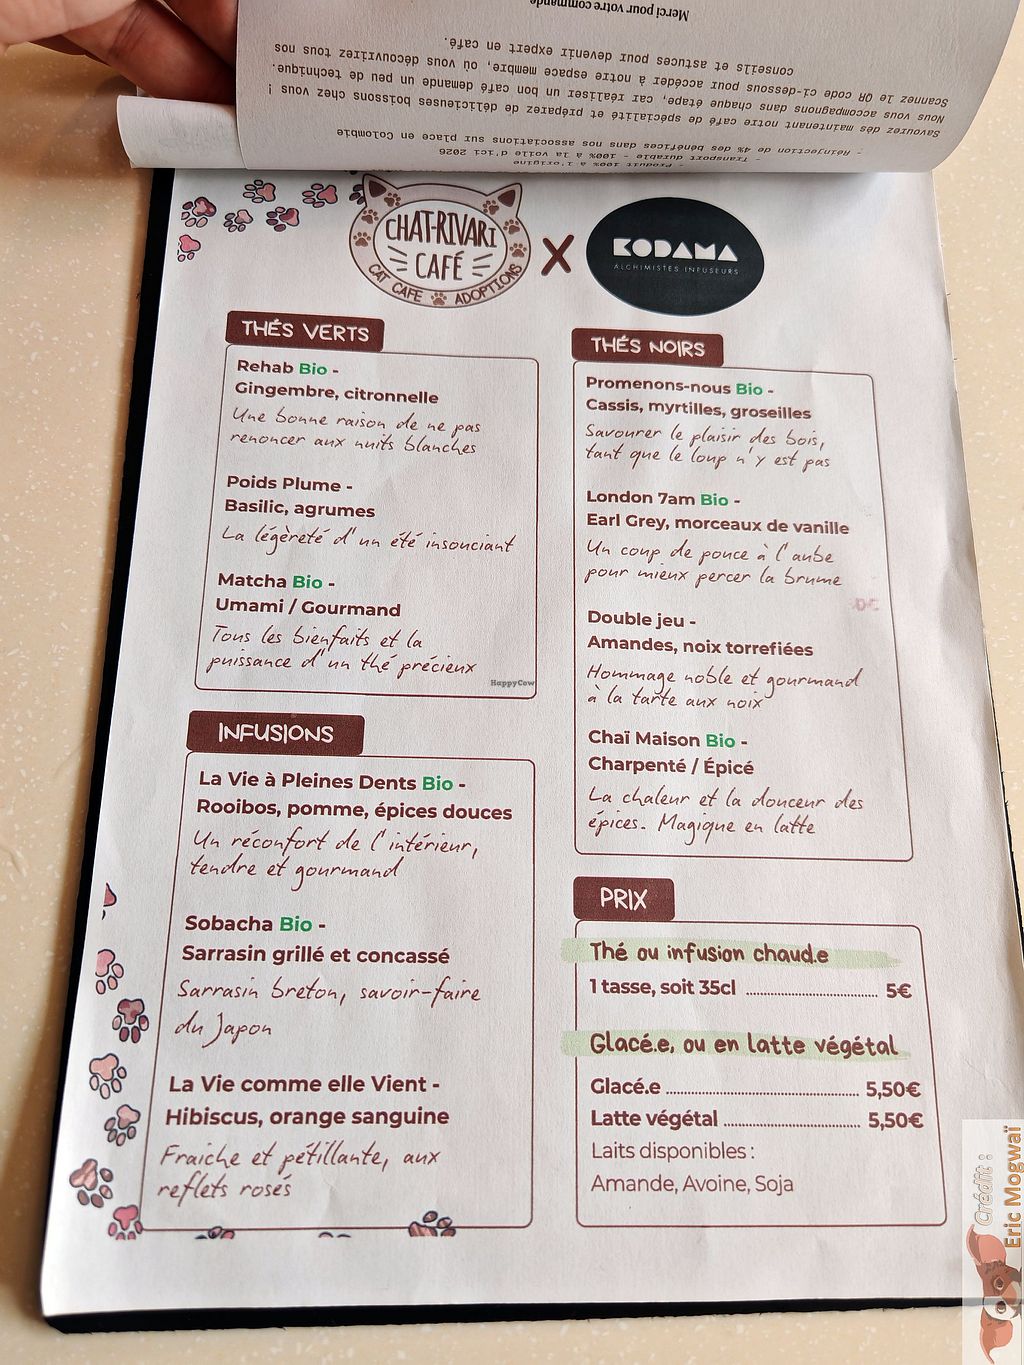 Merci pour votre commande
conseils et astuces pour devenir expert en café.
Scannez le QR code ci-dessous pour accéder à notre espace membre, où vous découvrirez tous nos
Nous vous accompagnons dans chaque étape, car réaliser un bon café demande un peu de technique.
Savourez dès maintenant notre café de spécialité et préparez de délicieuses boissons chez vous !
- Réinjection de 4% des bénéfices dans nos associations sur place en Colombie
- Transport durable - 100% à la voile d'ici 2026
- Produit 100% à l'origine
CHAT-RIVARI
CAFÉ
CAT CAFE ADOPTIONS
X
KODAMA
ALCHIMISTES INFUSEURS
THÉS VERTS
Rehab Bio -
Gingembre, citronnelle
Une bonne raison de ne pas
renoncer aux nuits blanches
Poids Plume -
Basilic, agrumes
La légèreté d'un été insouciant
Matcha Bio -
Umami / Gourmand
Tous les bienfaits et la
puissance d'un thé précieux
HappyCow
INFUSIONS
La Vie à Pleines Dents Bio -
Rooibos, pomme, épices douces
Un réconfort de l'intérieur,
tendre et gourmand
Sobacha Bio -
Sarrasin grillé et concassé
Sarrasin breton, savoir-faire
du Japon
La Vie comme elle Vient -
Hibiscus, orange sanguine
Fraiche et pétillante, aux
reflets rosés
THÉS NOIRS
Promenons-nous Bio -
Cassis, myrtilles, groseilles
Savourer le plaisir des bois,
tant que le loup n'y est pas
London 7am Bio -
Earl Grey, morceaux de vanille
Un coup de pouce à l'aube
pour mieux percer la brume
Double jeu -
Amandes, noix torrefiées
Hommage noble et gourmand
à la tarte aux noix
Chaï Maison Bio -
Charpenté / Épicé
La chaleur et la douceur des
épices. Magique en latte
PRIX
Thé ou infusion chaud.e
1 tasse, soit 35cl ........................ 5€
Glacé.e, ou en latte végétal
Glacé.e ........................ 5,50€
Latte végétal ........................ 5,50€
Laits disponibles :
Amande, Avoine, Soja
Crédit :
Eric Mogwaï